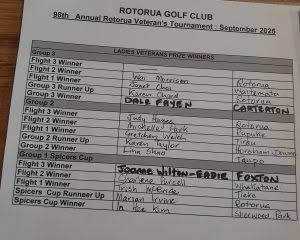 ROTORUA GOLF CLUB
98th Annual Rotorua Veteran's Tournament : September 2025
LADIES VETERANS PRIZE WINNERS
Group 3
Flight 3 Winner
Flight 2 Winner Wai Morrison Rotorua
Flight 1 Winner Janet Chea Waitemata
Group 3 Runner Up Karen Chard Rotorua
Group 3 Winner DALE FAYEN CARTERTON
Group 2
Flight 3 Winner Judy Rotorua
Flight 2 Winner Park Pupuke
Flight 1 Winner Gretchen Welch Tirau
Group 2 Runner Up Karen Taylor
Group 2 Winner Lina Shao Taupo
Group 1 Spicers Cup
Flight 3 Winner Joanne Wilton-EADIE FOXTON
Flight 2 Winner Charlene Purcell Whakatane
Flight 1 Winner Trish McBride Tieke
Spicers Cup Runner Up Marian Irvine Rotorua
Spicers Cup Winner In Ok Kim Sherwood Park